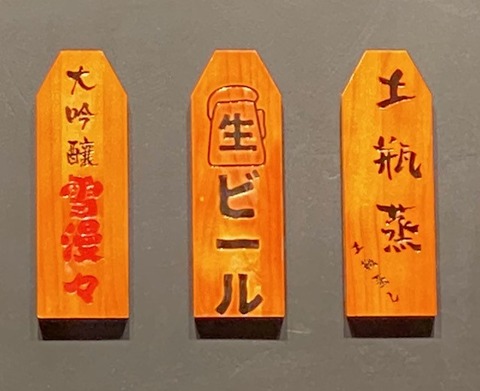 土瓶蒸
土瓶蒸し
生ビール
大吟醸雪漫々